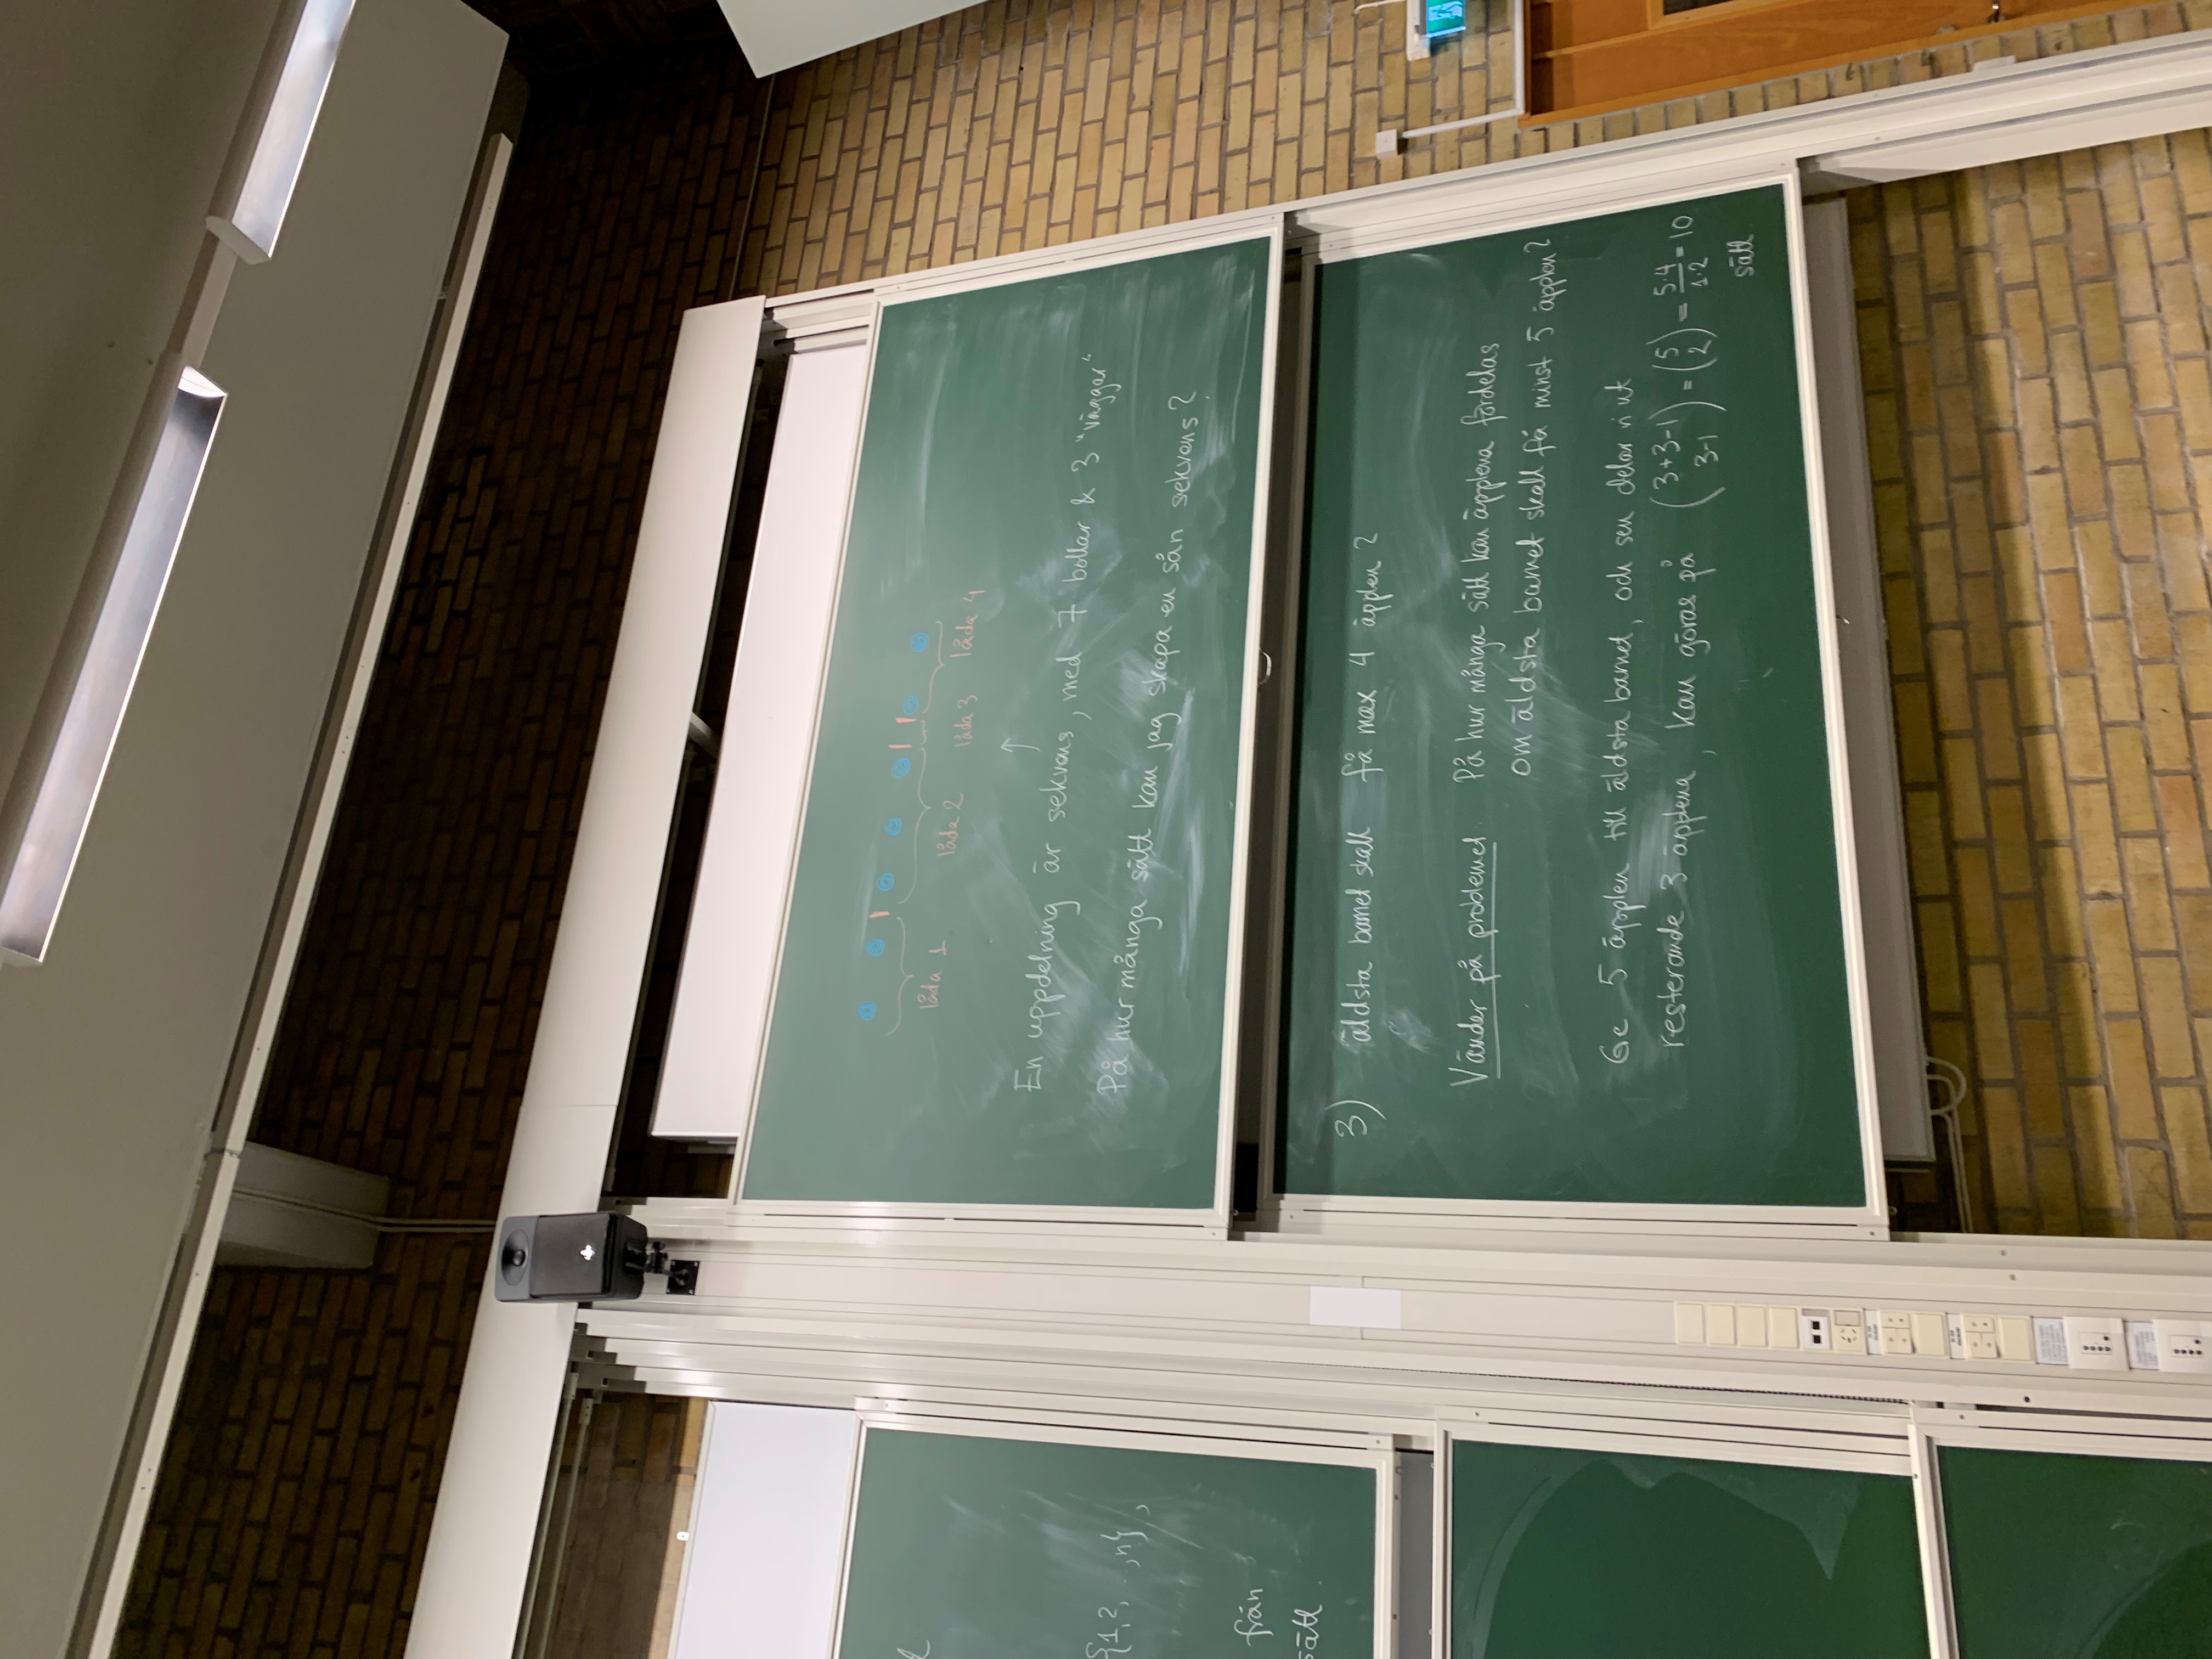 låda 1 låda 2 låda 3 låda 4
En uppdelning är sekvens, med 7 bollar & 3 "väggar"
På hur många sätt kan jag skapa en sån sekvens?
3) äldsta barnet skall få max 4 äpplen?
Vänder på problemet. På hur många sätt kan äpplena fördelas
om äldsta barnet skall få minst 5 äpplen?
Ge 5 äpplen till äldsta barnet, och sen delar vi ut
resterande 3 äpplena, kan göras på (3+3-1 / 3-1) = (5 / 2) = 5·4/1·2 = 10
sätt
{1,2, ,n},
från
sätt.